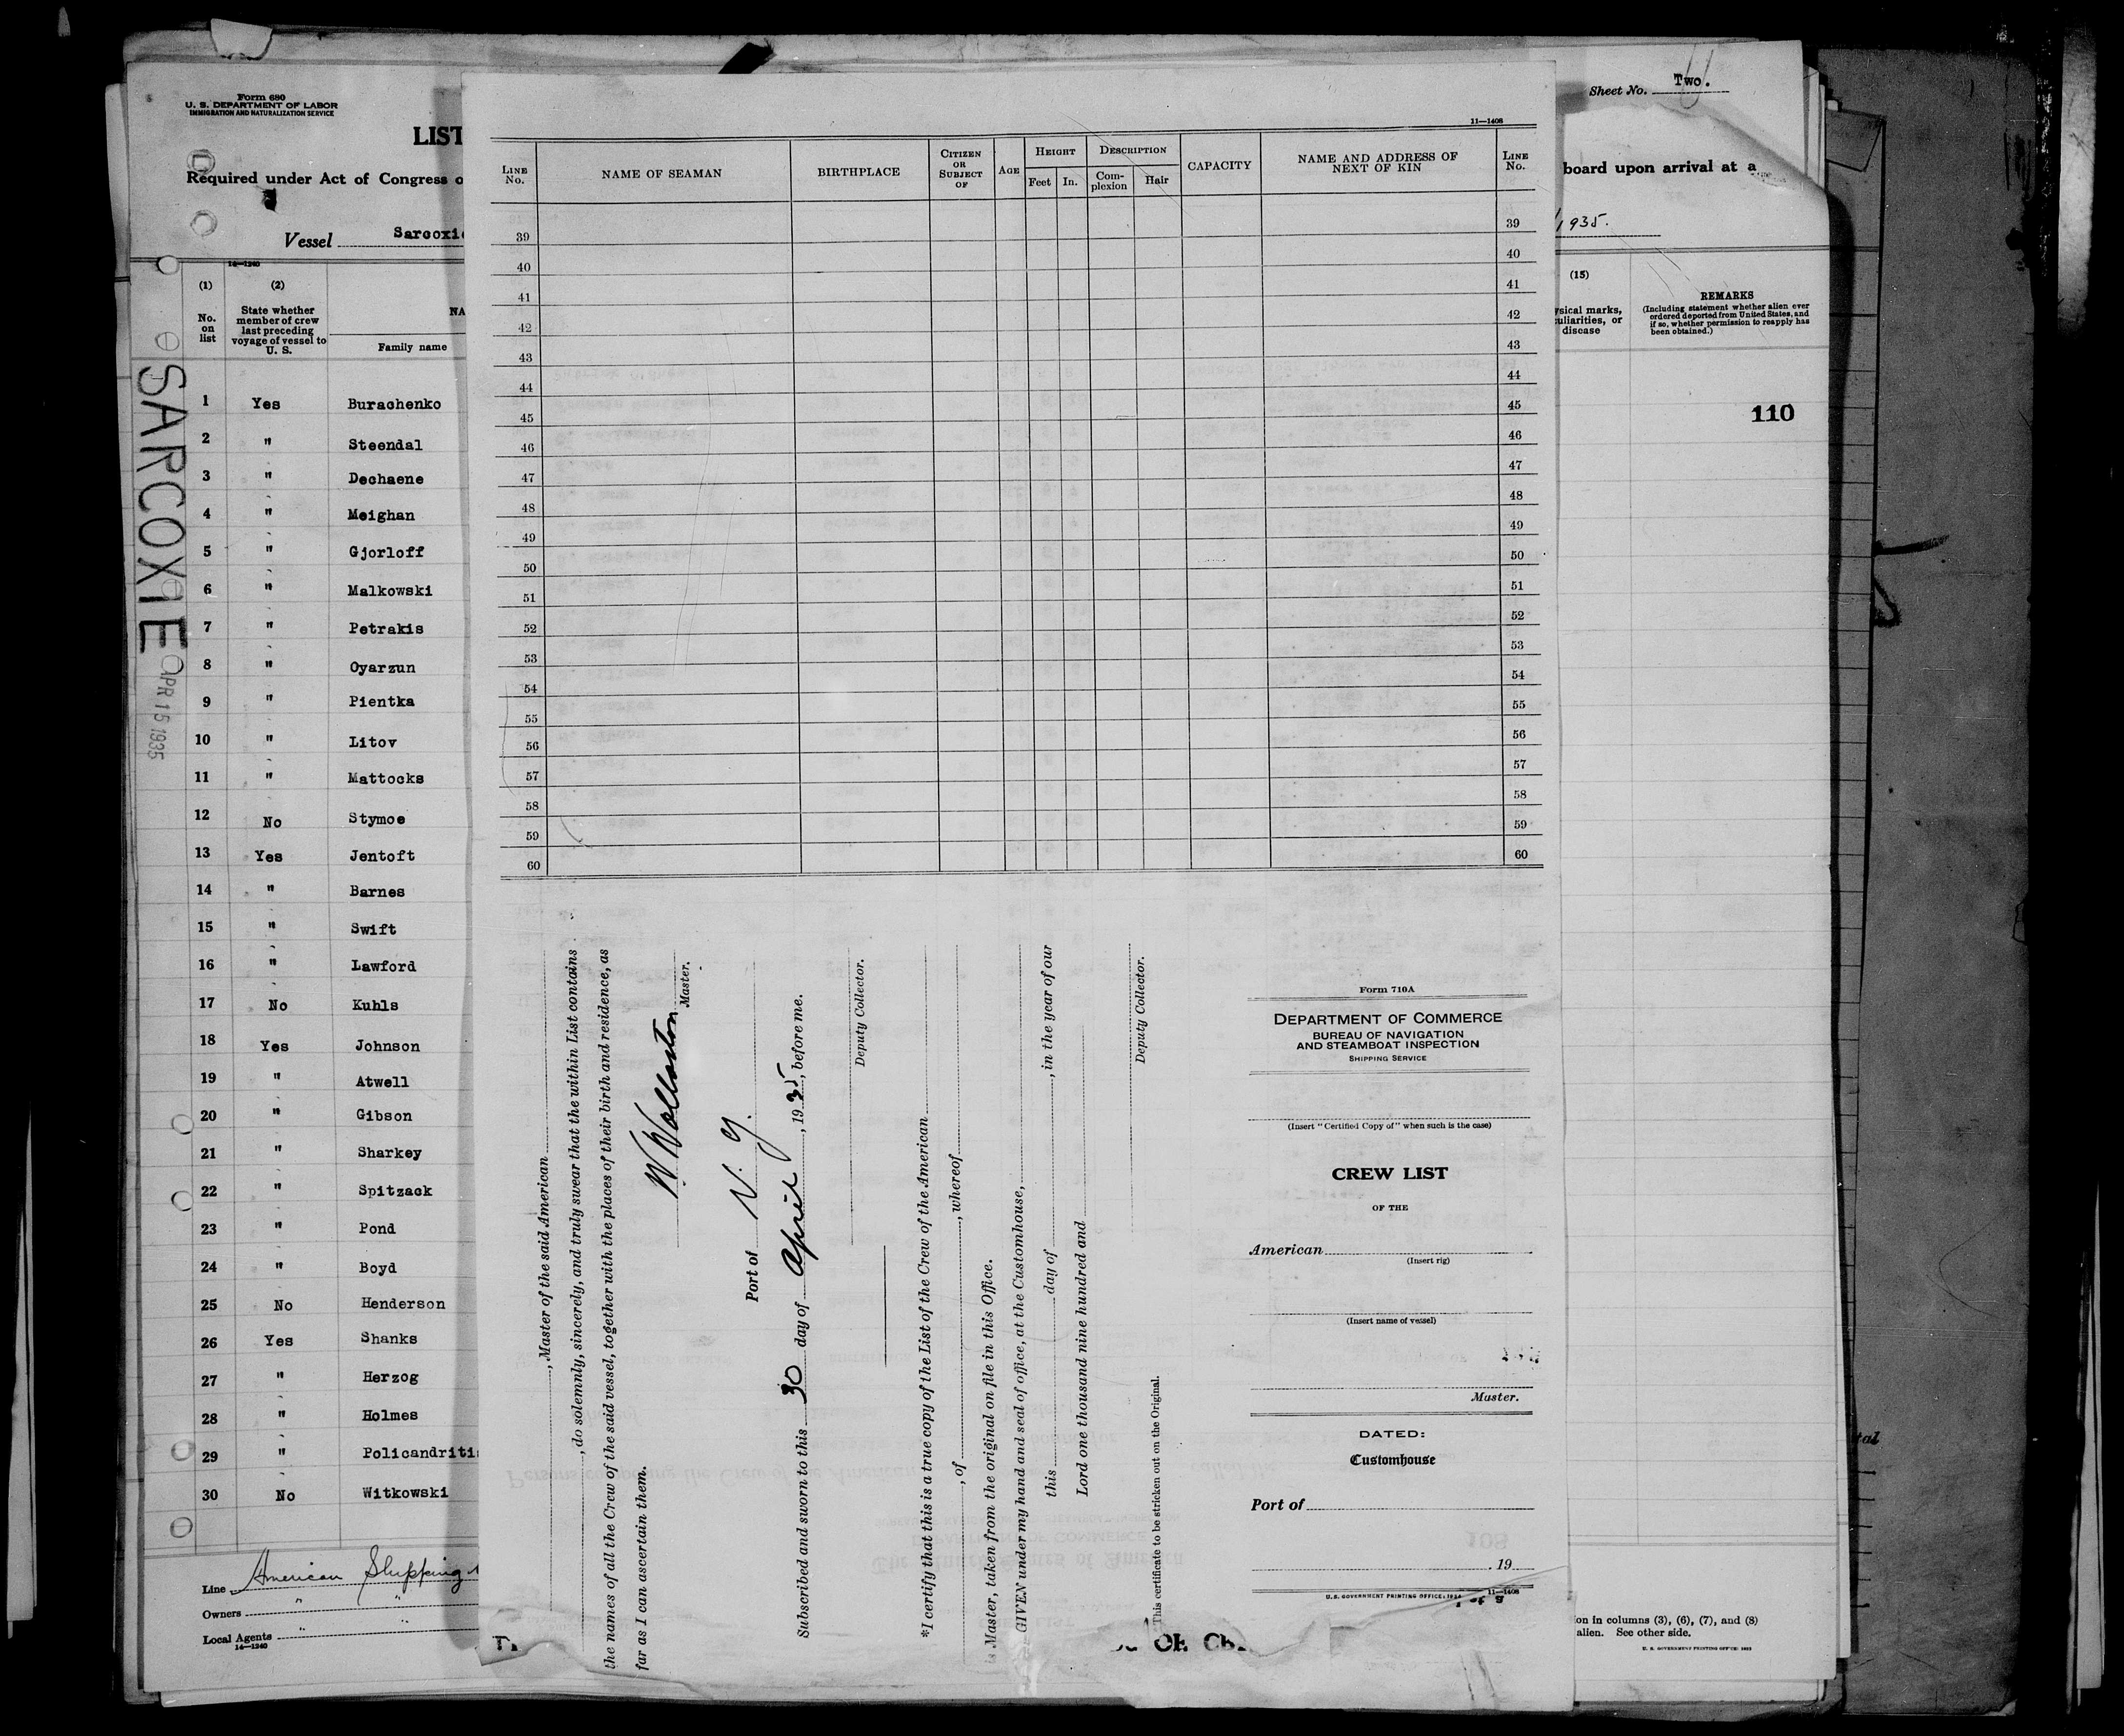 Form 680
U. S. DEPARTMENT OF LABOR
IMMIGRATION AND NATURALIZATION SERVICE
LIST
Required under Act of Congress o
Vessel Sarcoxie
14—1240
(1) (2)
No. on list
State whether member of crew last preceding voyage of vessel to U. S.
NA
Family name
1 Yes Burachenko
2 " Steendal
3 " Dechaene
4 " Meighan
5 " Gjorloff
6 " Malkowski
7 " Petrakis
8 " Oyarzun
9 " Pientka
10 " Litov
11 " Mattocks
12 No Stymoe
13 Yes Jentoft
14 " Barnes
15 " Swift
16 " Lawford
17 No Kuhls
18 Yes Johnson
19 " Atwell
20 " Gibson
21 " Sharkey
22 " Spitzack
23 " Pond
24 " Boyd
25 No Henderson
26 Yes Shanks
27 " Herzog
28 " Holmes
29 " Policandritis
30 No Witkowski
Line American Shipping
Owners " "
Local Agents "
14—1240
SARCOXIE
APR 15 1935
11—1408
LINE No. NAME OF SEAMAN BIRTHPLACE CITIZEN OR SUBJECT OF AGE HEIGHT Feet In. DESCRIPTION Complexion Hair CAPACITY NAME AND ADDRESS OF NEXT OF KIN LINE No.
39 39
40 40
41 41
42 42
43 43
44 44
45 45
46 46
47 47
48 48
49 49
50 50
51 51
52 52
53 53
54 54
55 55
56 56
57 57
58 58
59 59
60 60
, Master of the said American
, do solemnly, sincerely, and truly swear that the within List contains
the names of all the Crew of the said vessel, together with the places of their birth and residence, as
far as I can ascertain them.
W. Wollaston
Master.
Port of N. Y.
Subscribed and sworn to this 30 day of April, 1935, before me.
Deputy Collector.
*I certify that this is a true copy of the List of the Crew of the American
, of , whereof
is Master, taken from the original on file in this Office.
GIVEN under my hand and seal of office, at the Customhouse,
this day of , in the year of our
Lord one thousand nine hundred and
Deputy Collector.
This certificate to be stricken out on the Original.
Form 710A
DEPARTMENT OF COMMERCE
BUREAU OF NAVIGATION
AND STEAMBOAT INSPECTION
SHIPPING SERVICE
(Insert "Certified Copy of" when such is the case)
CREW LIST
OF THE
American
(Insert rig)
(Insert name of vessel)
Master.
DATED:
Customhouse
Port of
, 19
U.S. GOVERNMENT PRINTING OFFICE: 1934 11—1408
Sheet No. Two.
board upon arrival at a
1935.
(15)
ysical marks,
uliarities, or
disease
REMARKS
(Including statement whether alien ever
ordered deported from United States, and
if so, whether permission to reapply has
been obtained.)
110
on in columns (3), (6), (7), and (8)
alien. See other side.
U. S. GOVERNMENT PRINTING OFFICE:
tal